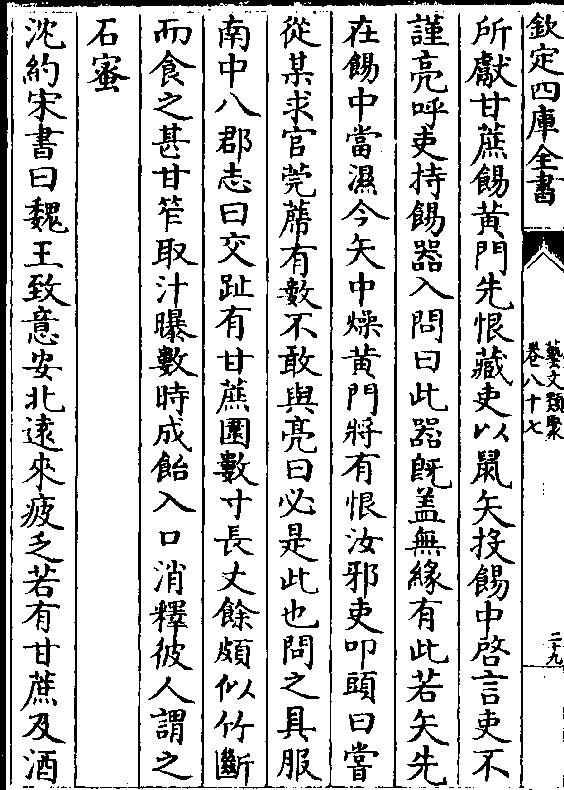 欽定四庫全書
藝文類聚
卷八十七
二十九
所獻甘蔗餳黄門先恨藏吏以鼠矢投餳中啓言吏不
謹亮呼吏持餳器入問曰此器既盖無緣有此若矢先
在餳中當濕今矢中燥黄門將有恨汝邪吏叩頭曰嘗
從某求官莞蓆有數不敢與亮曰必是此也問之具服
南中八郡志曰交趾有甘蔗圍數寸長丈餘頗似竹斷
而食之甚甘笮取汁曝數時成飴入口消釋彼人謂之
石蜜
沈約宋書曰魏王致意安北逺來疲乏若有甘蔗及酒